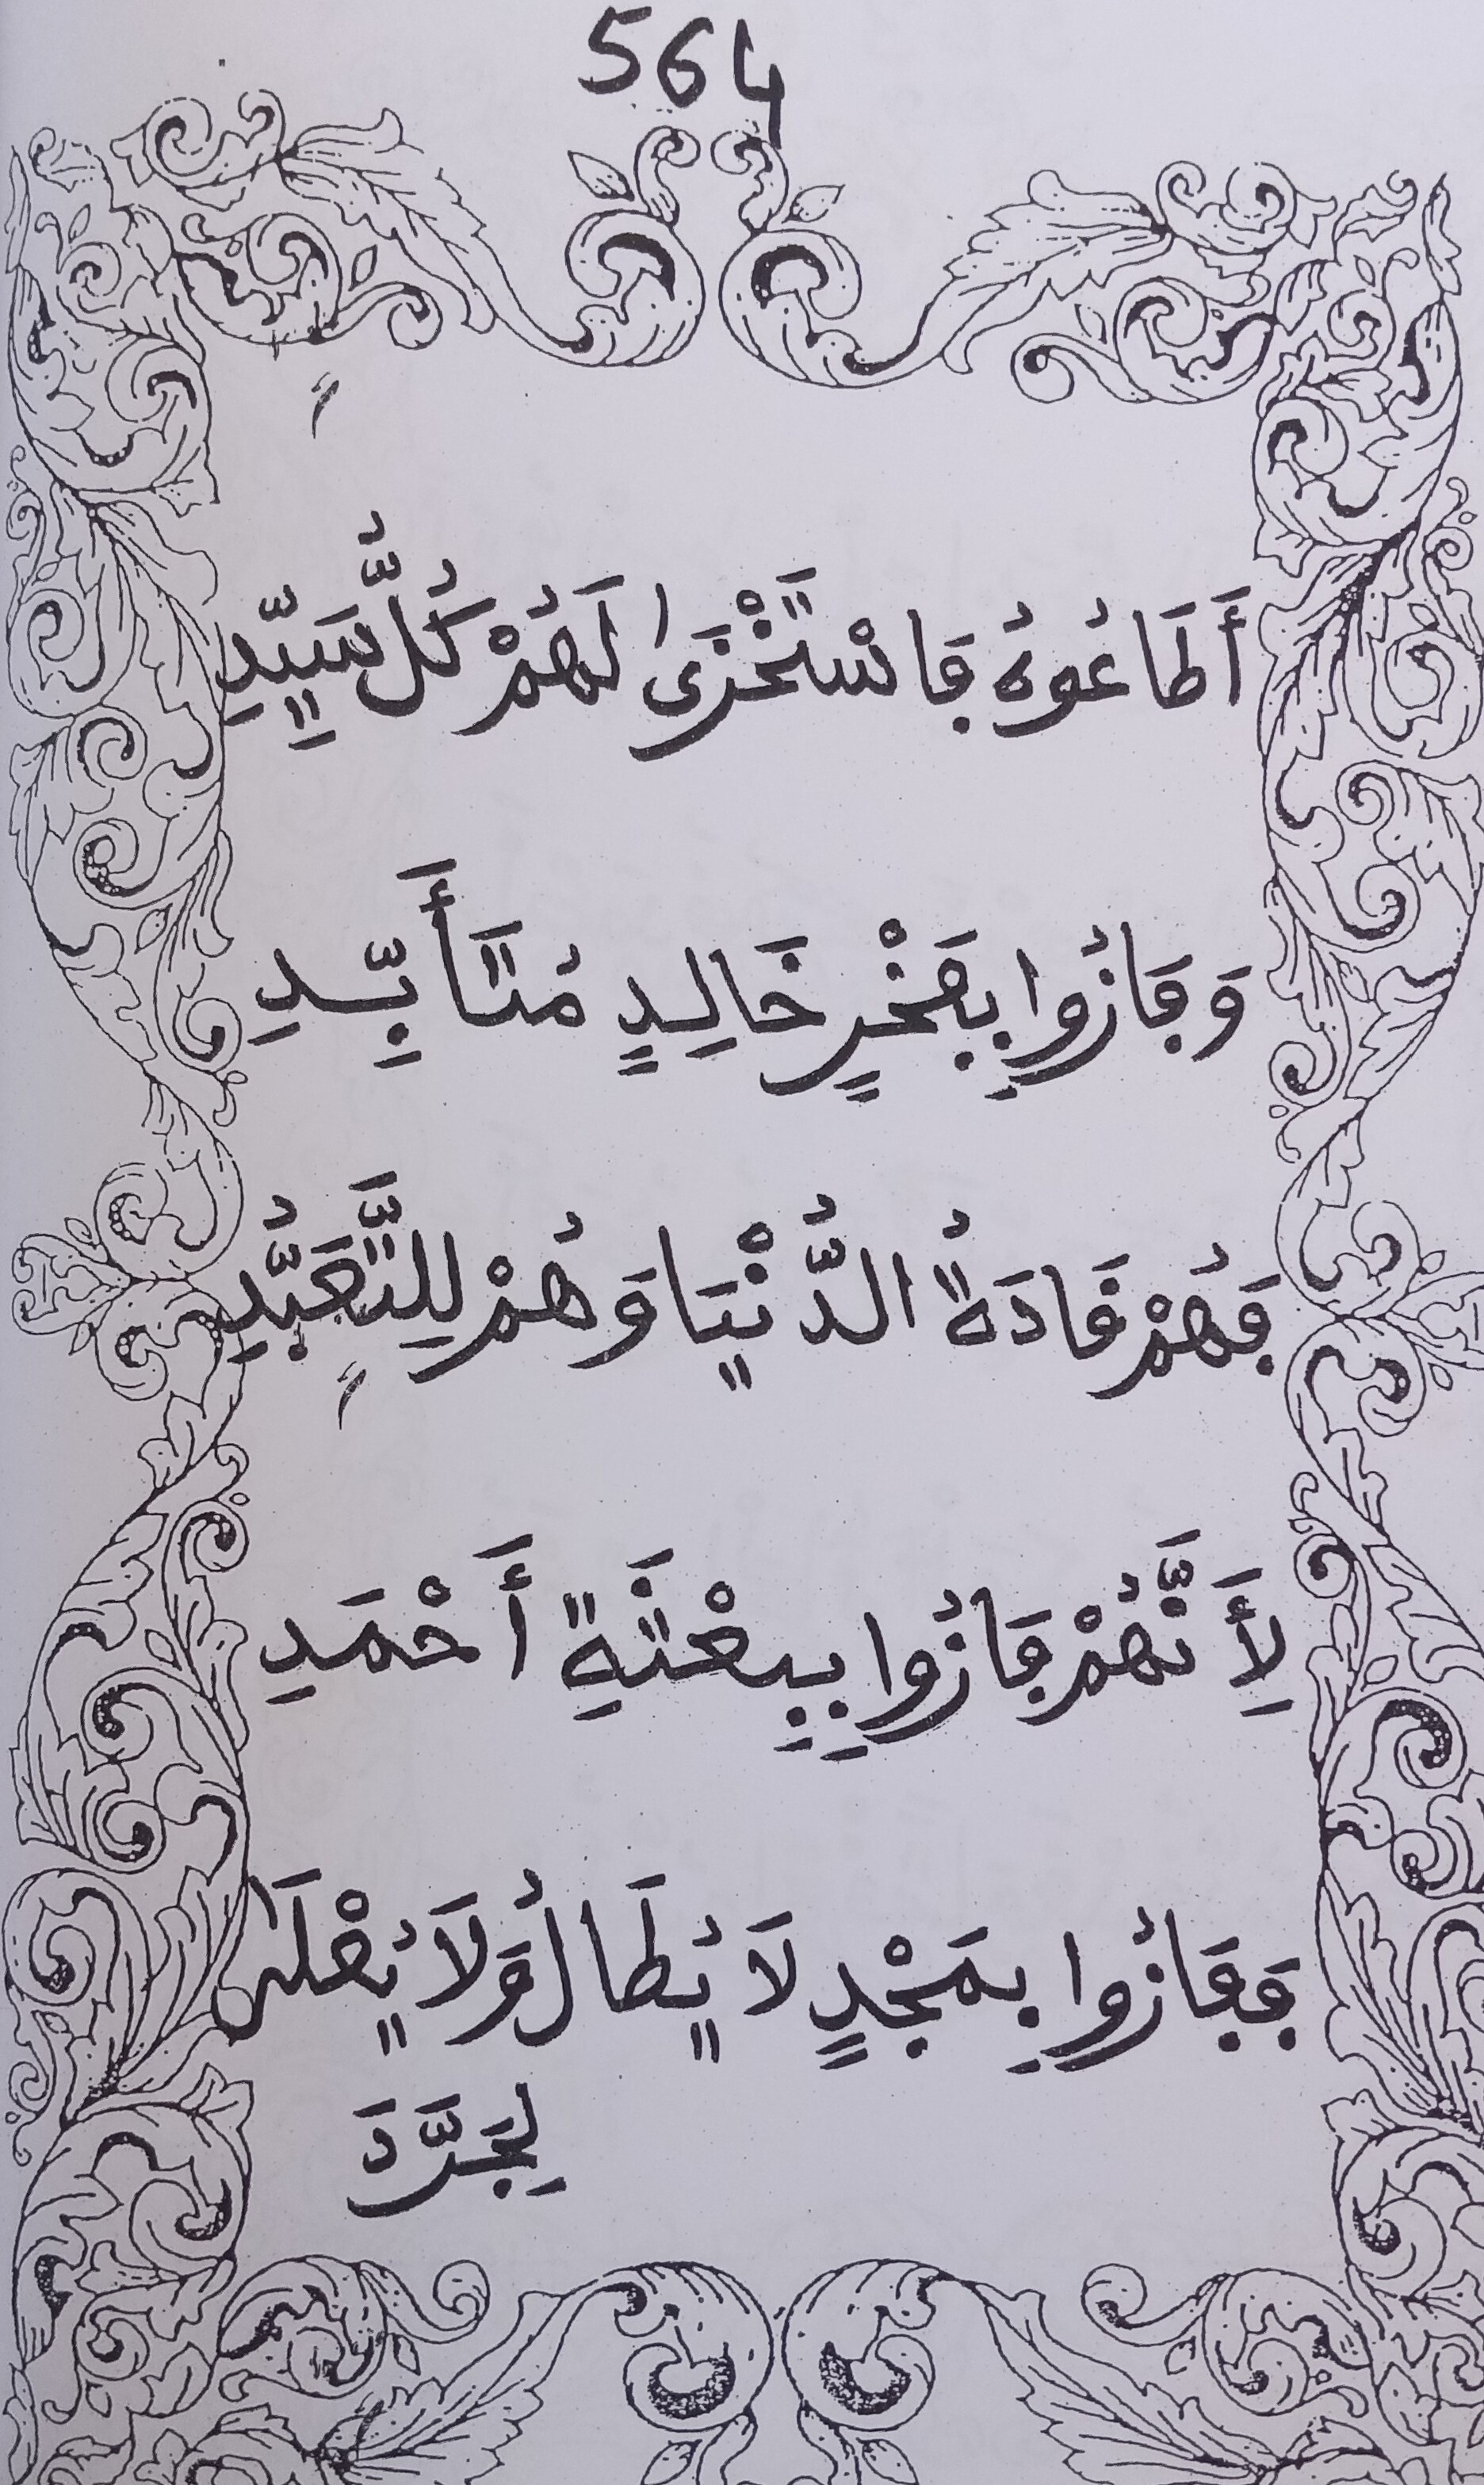 564
أَطَاعُوهُ فَاسْتَخْزَىٰ لَهُمْ كُلُّ سَيِّدِ
وَفَازُوا بِفَخْرٍ خَالِدٍ مُتَأَبِّدِ
فَهُمْ قَادَةُ الدُّنْيَا وَهُمْ لِلتَّعَبُّدِ
لِأَنَّهُمْ فَازُوا بِبِعْثَةِ أَحْمَدِ
فَفَازُوا بِمَجْدٍ لَا يُطَالُ وَلَا يُعْلَىٰ
لِجَرَّدَ